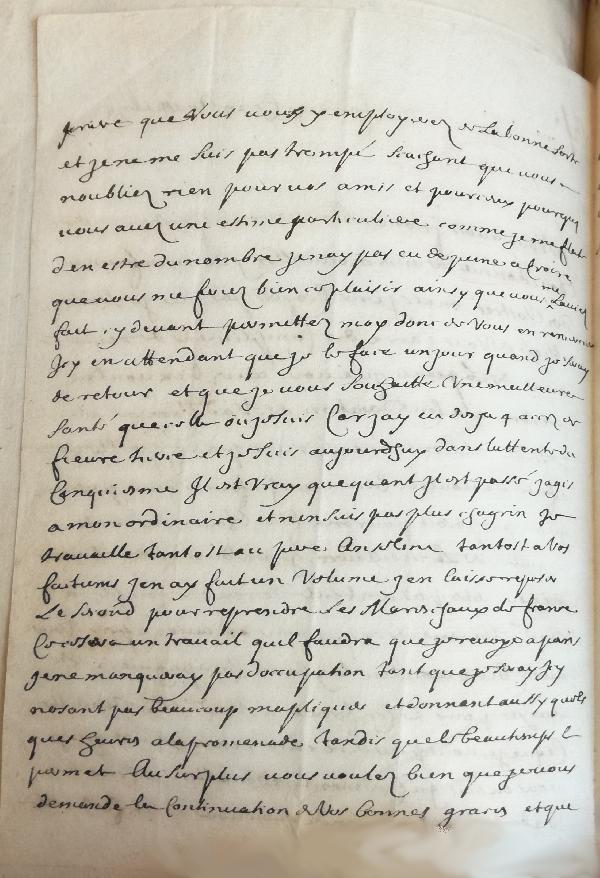 que vous vous y employerez de la bonne sorte
et je ne me suis pas trompé scachant que vous
noubliez rien pour vos amis et pour ceux pourquy
vous avez une estime particuliere comme je me flatte
den estre du nombre je nay pas eu de peine a croire
que vous me feriez bien ce plaisir ainsy que vous me laviez
fait cy devant permettez moy donc de vous en remercier
Icy en attendant que je le face un jour quand je seray
de retour et que je vous souhaitte une meilleure
santé que celle où je suis Car jay eu desja 4 accez de
fievre tierce et je suis aujourdhuy dans lattente du
Cinquiesme Il est vray que quant il est passé jagis
a mon ordinaire et nen suis pas plus chagrin je
travaille tantost au pere Anselme tantost a vos
factums jen ay fait un volume jen laisse reposer
Le second pour reprendre Les Mareschaux de france
Ce sera un travail quil faudra que je revoye a paris
je ne manqueray pas doccupation tant que je seray Icy
nosant pas beaucoup mapliquer et donnant aussy quels
ques heures a la promenade tandis que le beau temps le
permet Au surplus vous voulez bien que je vous
demande la Continuation de vos bonnes graces et que